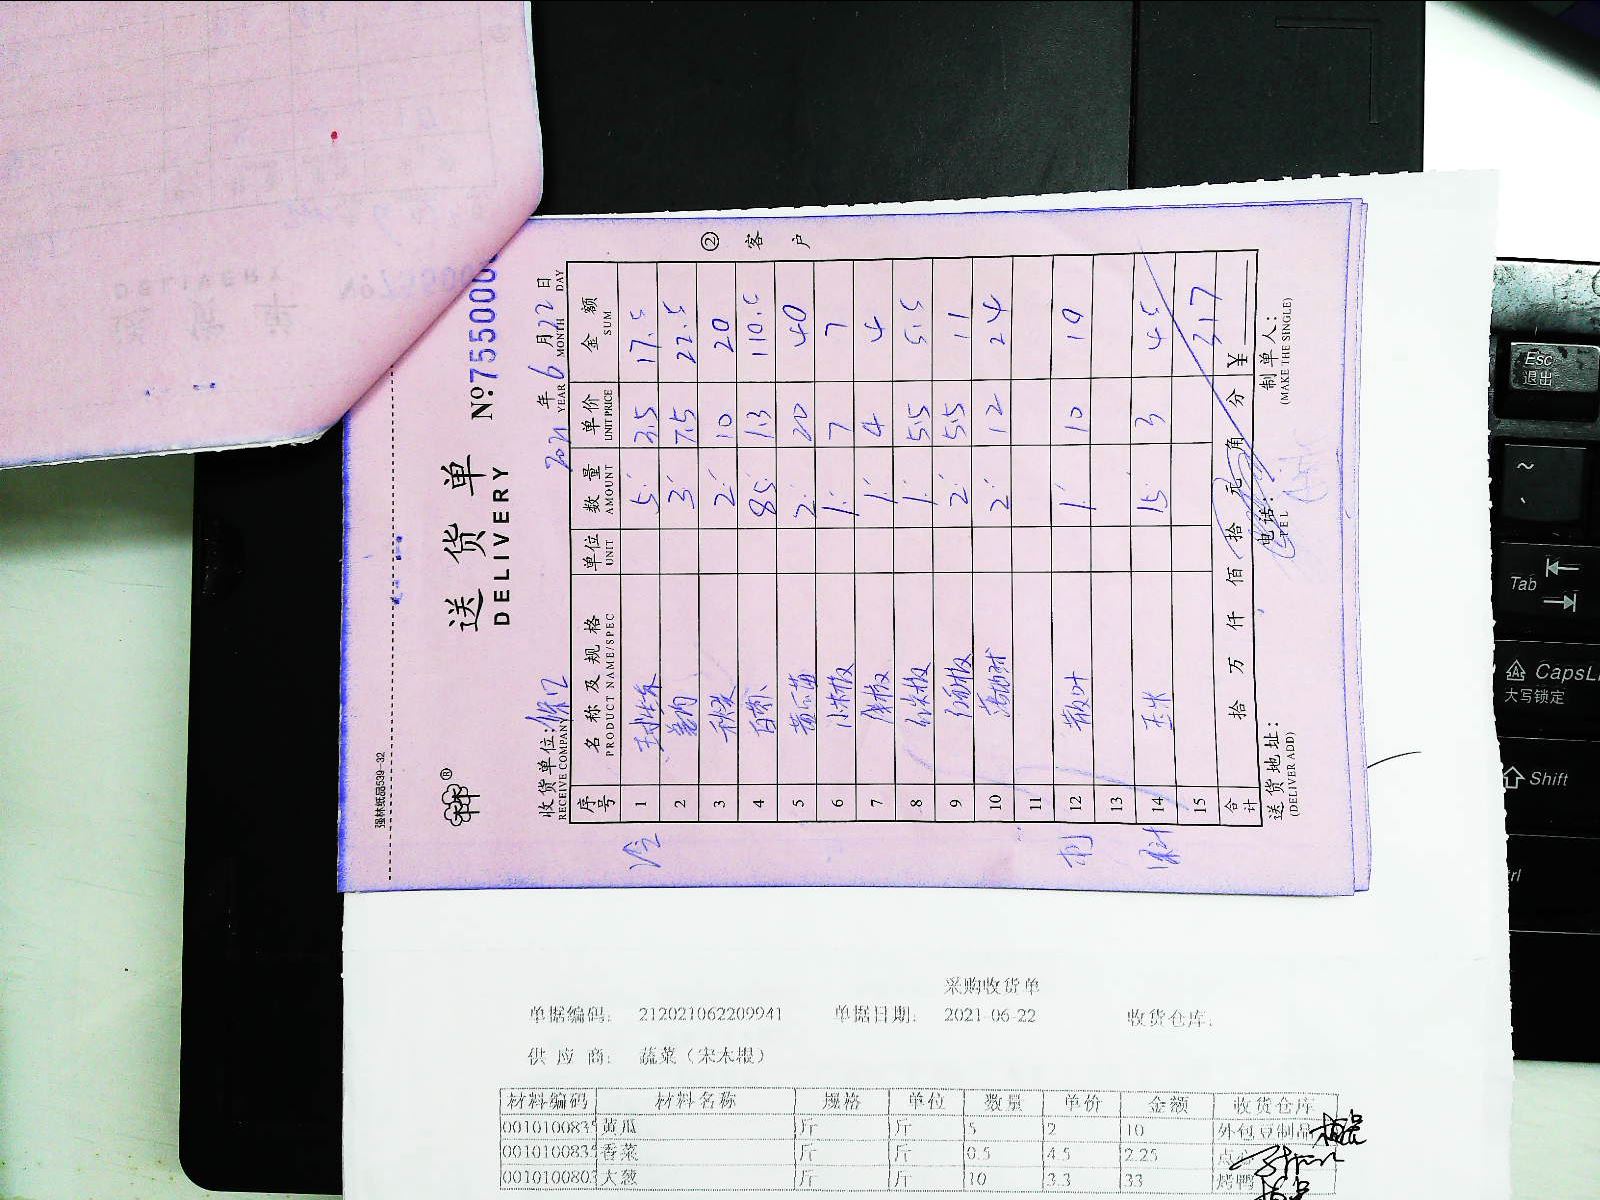 强林纸品539-32
送货单
DELIVERY
№755000
收货单位:
RECEIVE COMPANY
2021年6月22日
YEAR MONTH DAY
②客户
序号 名称及规格 单位 数量 单价 金额
PRODUCT NAME/SPEC UNIT AMOUNT UNIT PRICE SUM
1 5 3.5 17.5
2 3 7.5 22.5
3 2 10 20
4 85 1.3 110.5
5 黄瓜苗 2 20 40
6 小米椒 1 7 7
7 1 4 4
8 1 5.5 5.5
9 2 5.5 11
10 2 12 24
11
12 散叶 1 10 10
13
14 玉米 15 3 45
15 317
合计 拾 万 仟 佰 拾 元 角 分 ¥
送货地址: 电话: 制单人:
(DELIVER ADD) TEL (MAKE THE SINGLE)
采购收货单
单据编码: 212021062209941 单据日期: 2021-06-22 收货仓库:
供应商: 蔬菜(宋木根)
材料编码 材料名称 规格 单位 数量 单价 金额 收货仓库
0010100835 黄瓜 斤 斤 5 2 10 外包豆制品
0010100835 香菜 斤 斤 0.5 4.5 2.25 点
0010100803 大葱 斤 斤 10 3.3 33 烤鸭
Esc
退出
~
Tab
CapsL
大写锁定
Shift
trl